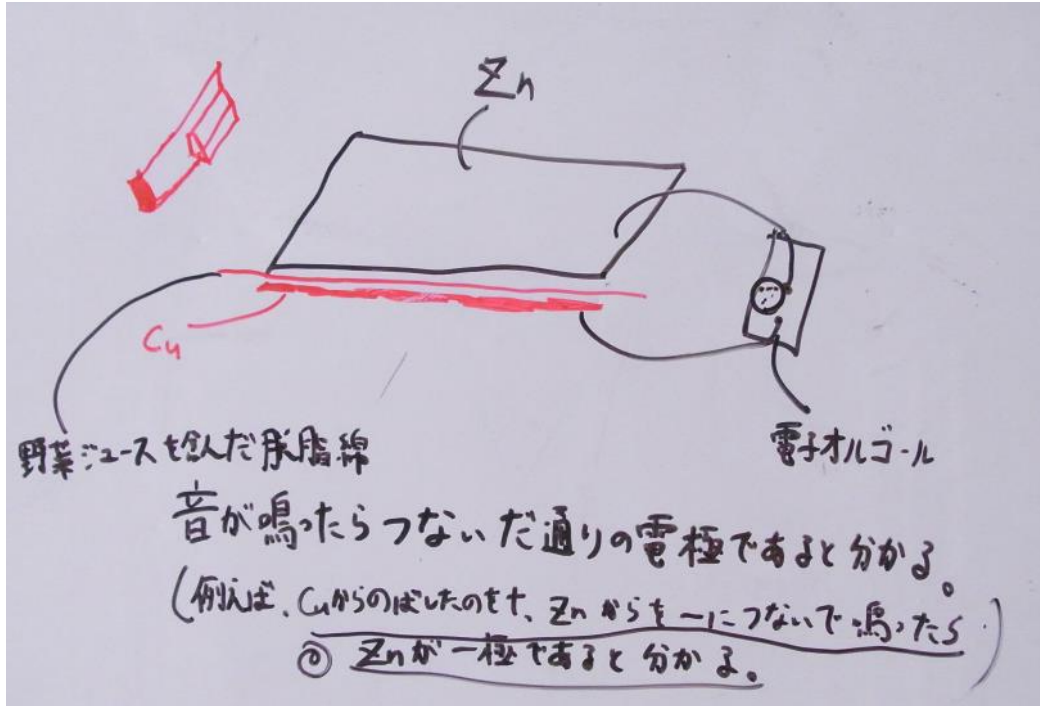 Zn
Cu
野菜ジュースを含んだ脱脂綿
電子オルゴール
音が鳴ったらつないだ通りの電極であると分かる。
(例えば、Cuからのばしたのを+、Znからを-につないで鳴ったら
◎ Znが-極であると分かる。)